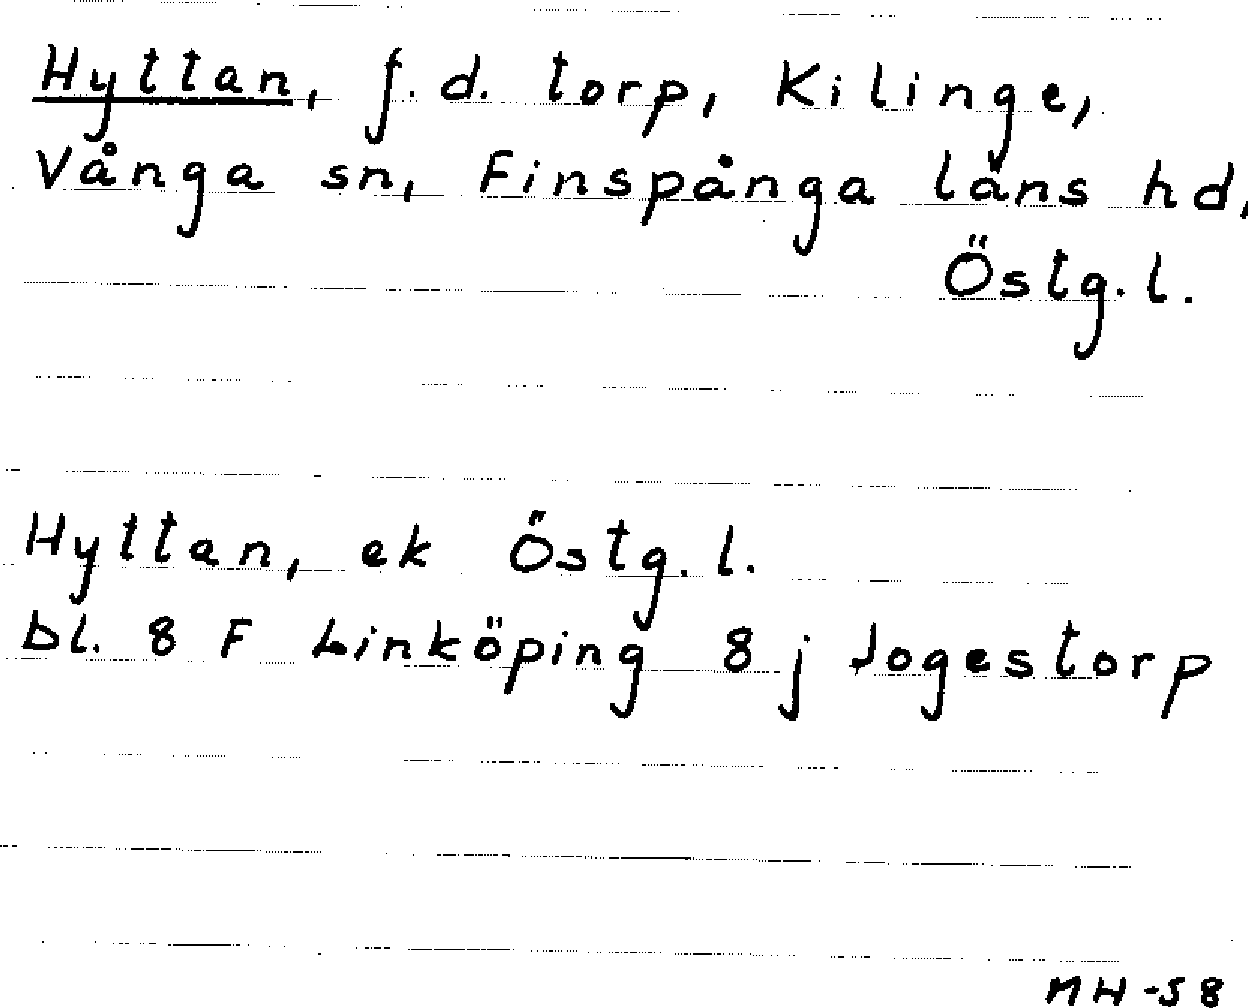 Hyttan, f.d. torp, Kilinge,
Vånga sn, Finspånga läns hd,
Östg.l.
Hyttan, ek Östg.l.
bl. 8 F Linköping 8 j Jogestorp
MH-58